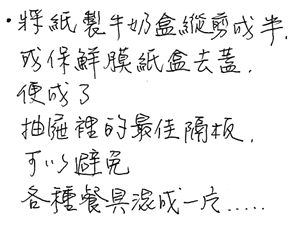 ·將紙製牛奶盒縱剪成半.
或保鮮膜紙盒去蓋.
便成了
抽屜裡的最佳隔板.
可以避免
各種餐具混成一片.....